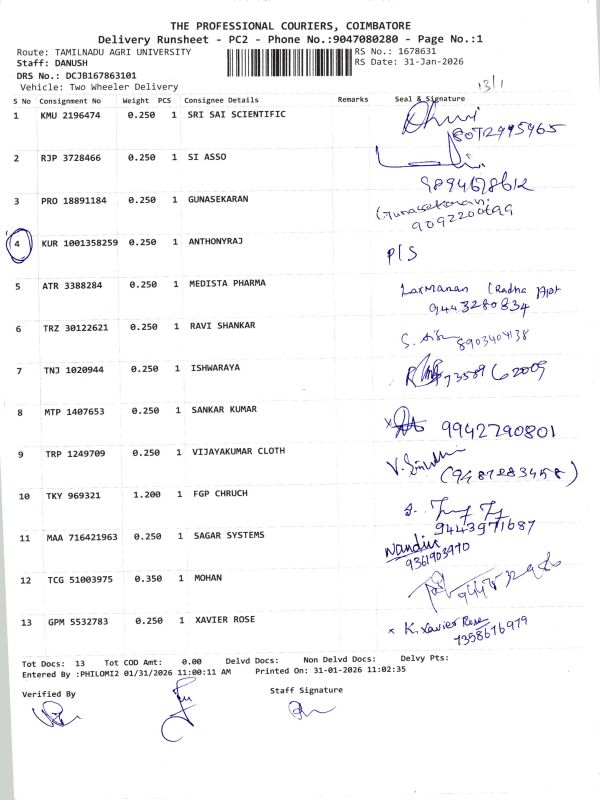 THE PROFESSIONAL COURIERS, COIMBATORE
Delivery Runsheet - PC2 - Phone No.:9047080280 - Page No.:1
Route: TAMILNADU AGRI UNIVERSITY RS No.: 1678631
Staff: DANUSH RS Date: 31-Jan-2026
DRS No.: DCJB167863101
Vehicle: Two Wheeler Delivery
13/1
S No Consignment No Weight PCS Consignee Details Remarks Seal & Signature
1 KMU 2196474 0.250 1 SRI SAI SCIENTIFIC
2 RJP 3728466 0.250 1 SI ASSO
9894678612
3 PRO 18891184 0.250 1 GUNASEKARAN Gunasekaran.
9092200699
4 KUR 1001358259 0.250 1 ANTHONYRAJ P/S
5 ATR 3388284 0.250 1 MEDISTA PHARMA Laxmanan (Radha Apt
9443280834
6 TRZ 30122621 0.250 1 RAVI SHANKAR
8903404138
7 TNJ 1020944 0.250 1 ISHWARAYA
8 MTP 1407653 0.250 1 SANKAR KUMAR x 9942790801
9 TRP 1249709 0.250 1 VIJAYAKUMAR CLOTH
(9487283458)
10 TKY 969321 1.200 1 FGP CHRUCH
9443971687
11 MAA 716421963 0.250 1 SAGAR SYSTEMS Nandini
9361903970
12 TCG 51003975 0.350 1 MOHAN
13 GPM 5532783 0.250 1 XAVIER ROSE x K. Xavier Rose
7358676979
Tot Docs: 13 Tot COD Amt: 0.00 Delvd Docs: Non Delvd Docs: Delvy Pts:
Entered By :PHILOMI2 01/31/2026 11:00:11 AM Printed On: 31-01-2026 11:02:35
Verified By Staff Signature